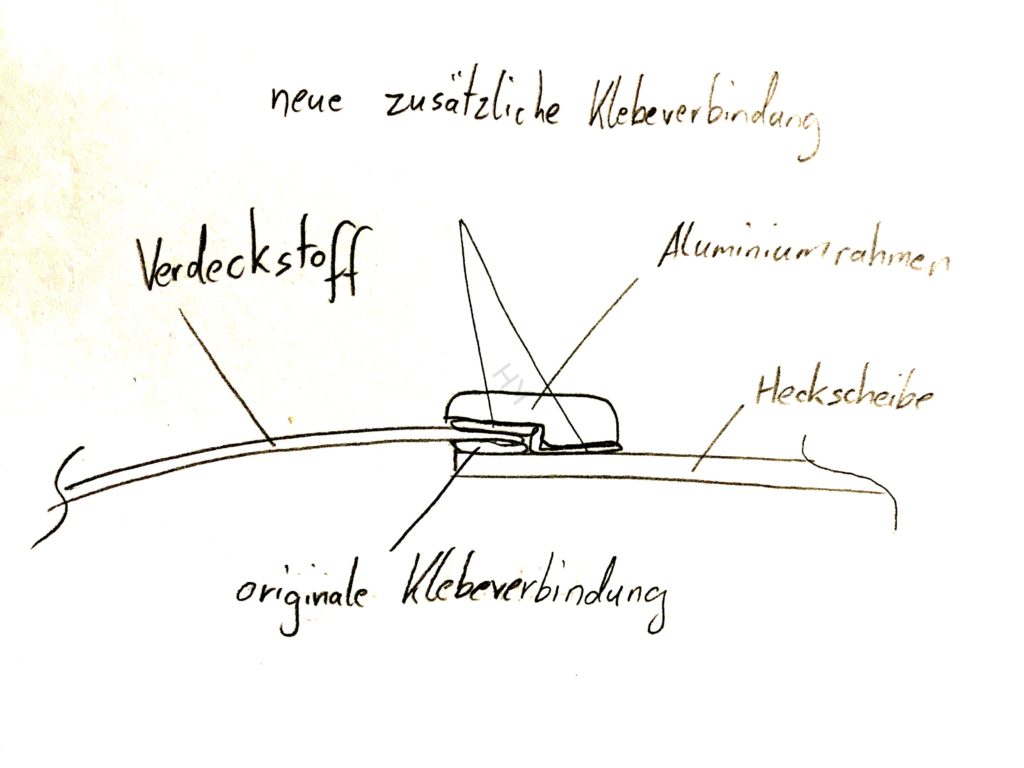 neue zusätzliche Klebeverbindung
Verdeckstoff
Aluminiumrahmen
Heckscheibe
originale Klebeverbindung
HY